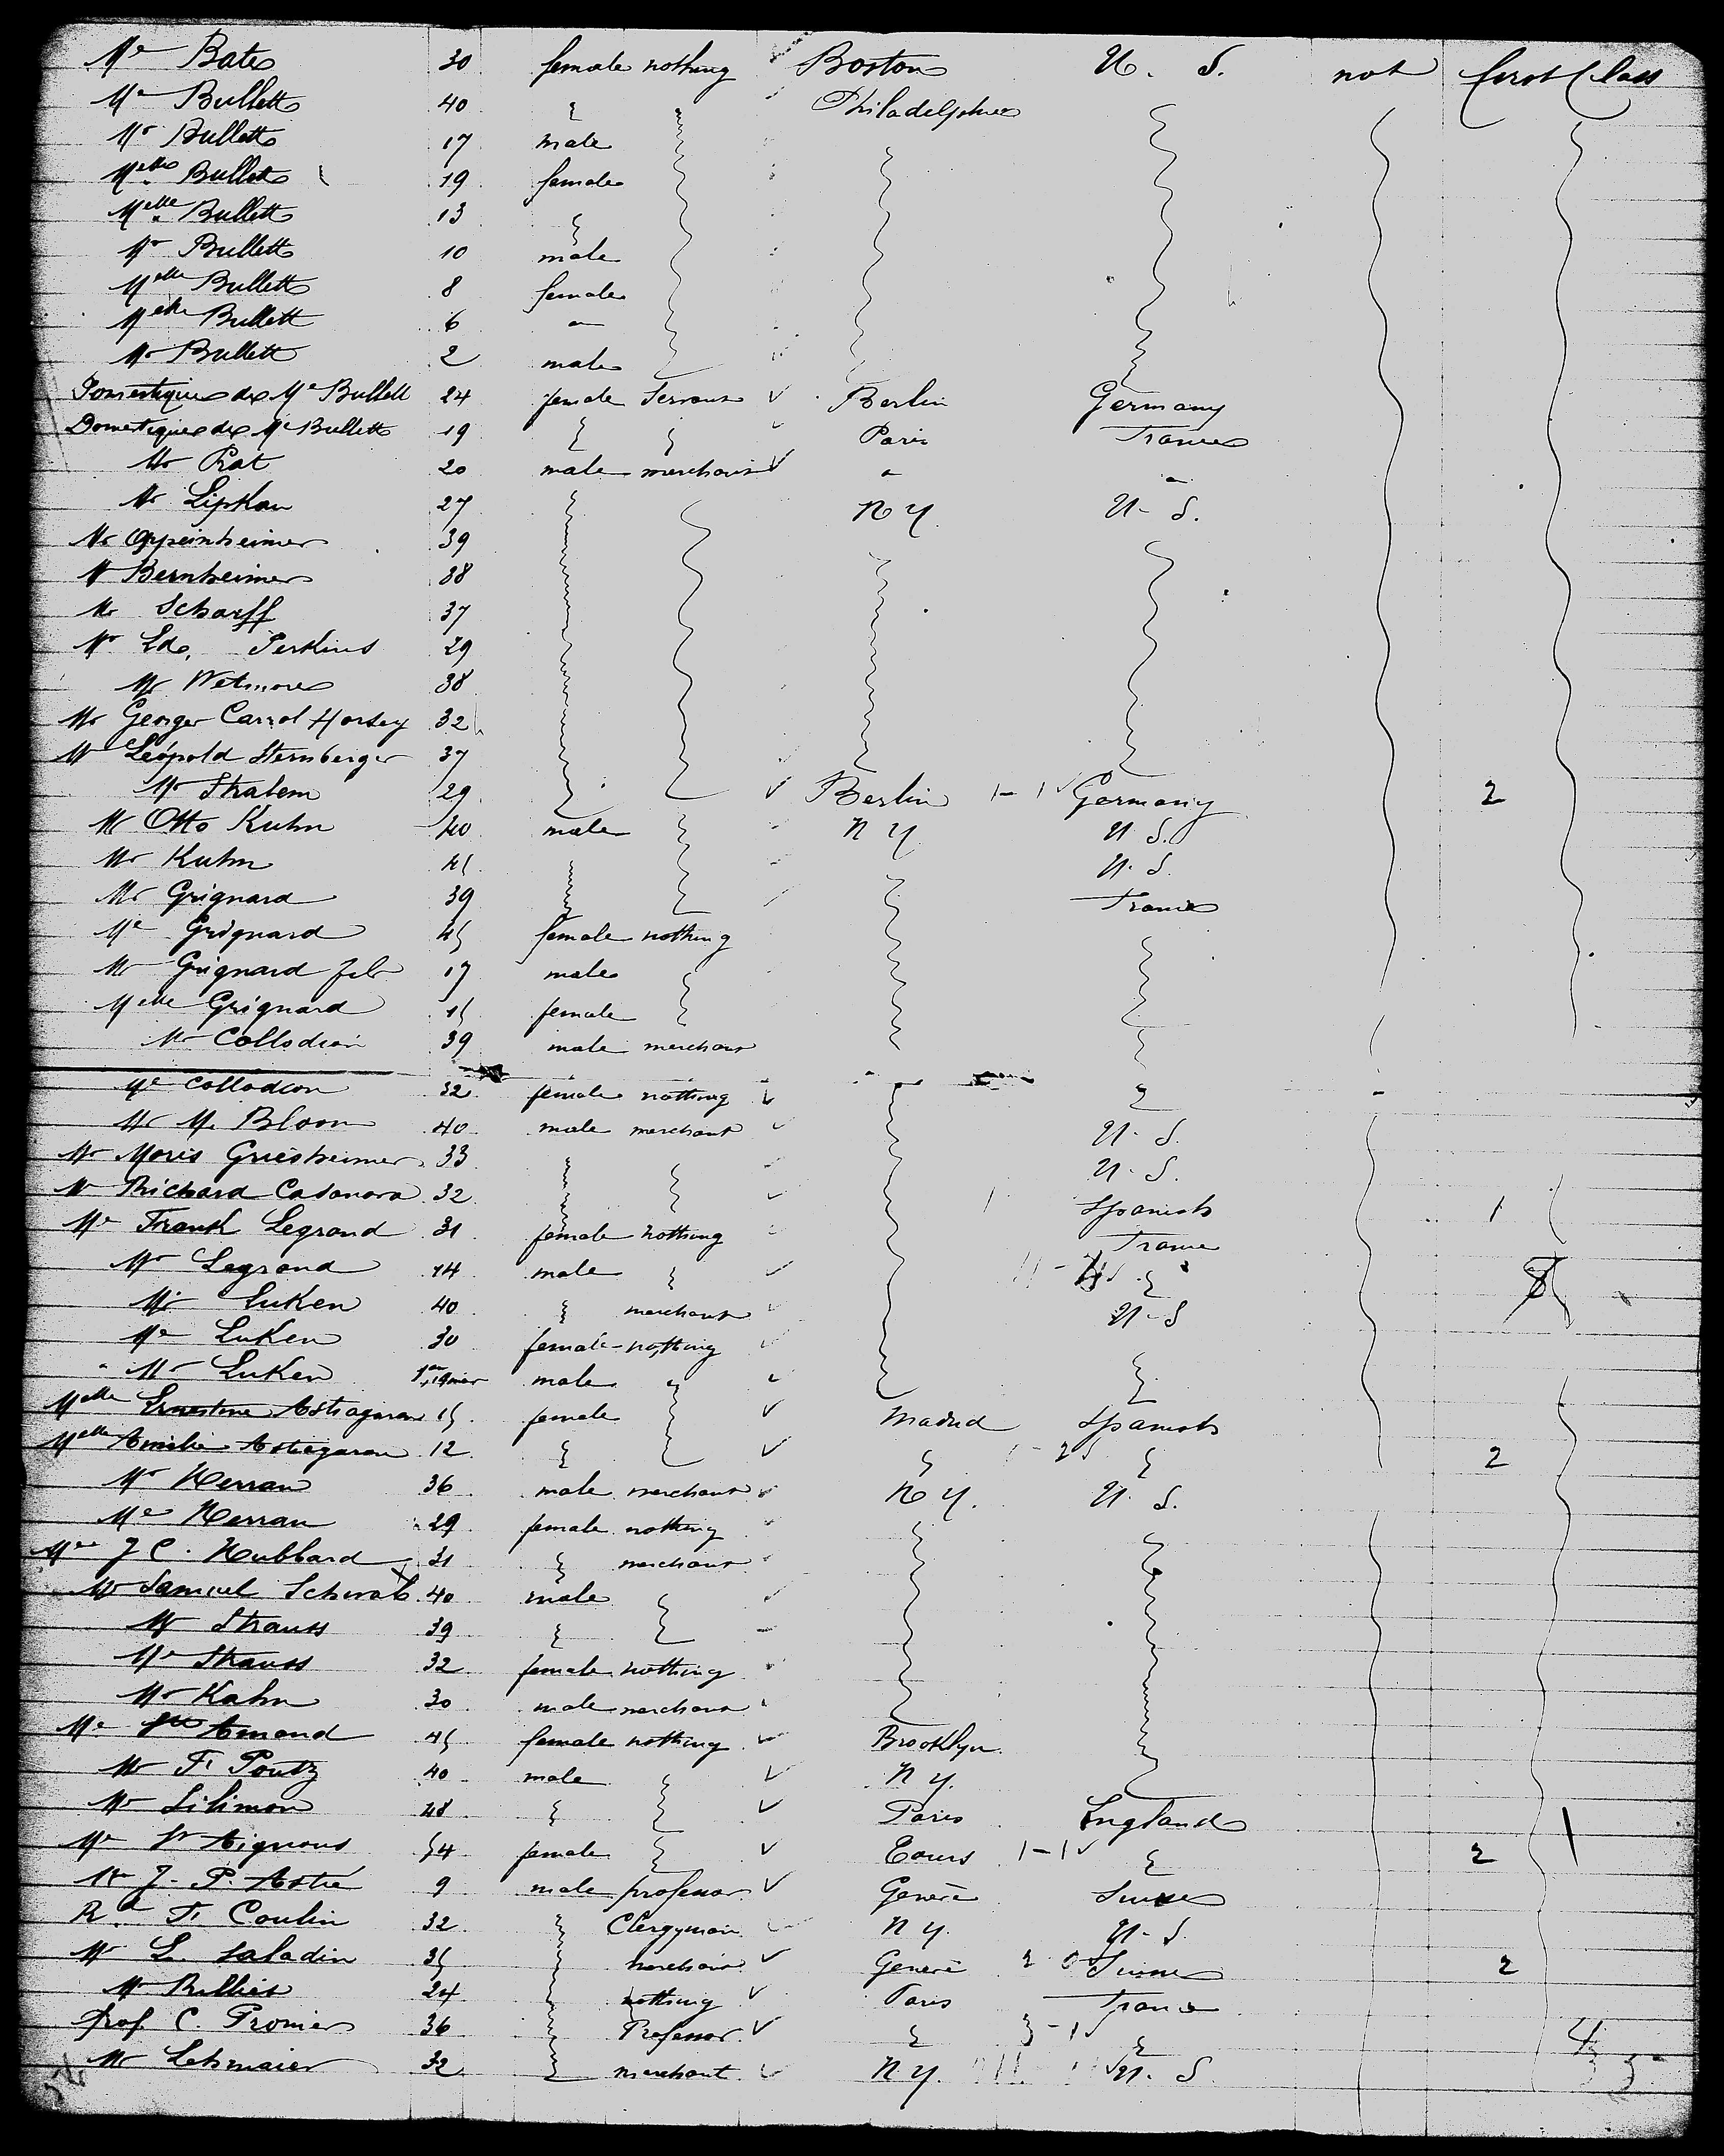 Me Bates 30 female nothing Boston U. S. not first Class
Me Bullett 40 " Philadelphia
Mr Bullett 17 male
Melle Bullett 19 female
Melle Bullett 13 "
Mr Bullett 10 male
Melle Bullett 8 female
Melle Bullett 6 "
Mr Bullett 2 male
Domestique de Me Bullett 24 female Servant ✓ Berlin Germany
Domestique de Me Bullett 19 " " ✓ Paris France
Mr Prat 20 male merchant ✓ " "
Mr Lipkau 27 N Y U- S.
Mr Oppeinheimer 39
Mr Bernheimer 38
Mr Scharff 37
Mr Ed. Perkins 29
Mr Wetmore 38
Mr George Carrol Horsey 32
Mr Léopold Sternberger 37
Mr Stralem 29 ✓ Berlin 1-1 ✓ Germany 2
Mr Otto Kuhn 40 male " N Y U S.
Mr Kuhn 45 U. S.
Mr Grignard 39 France
Me Grignard 45 female nothing
Mr Grignard fils 17 male
Melle Grignard 15 female
Mr Collodion 39 male merchant
Me Collodion 32 female nothing ✓ "
Mr M. Bloom 40 male merchant ✓ U- S.
Mr Moris Griesheimer 33 " " U- S.
Mr Richard Casanova 32 ✓ 1 Spanish 1
Me Frank Legrand 31 female nothing France
Mr Legrand 14 male " ✓ "
Mr Luken 40 " merchant U-S
Me Luken 30 female nothing
Mr Luken male " ✓ "
Melle Ernestine Astragaran 15 female ✓ Madrid Spanish
Melle Amilie Astragaran 12 " ✓ " - 2 " 2
Mr Herran 36 male merchant N Y. U. S.
Me Herran 29 female nothing
J C. Hubbard 31 " merchant
Mr Samuel Schwab 40 male "
Mr Strauss 39 "
Me Strauss 32 female nothing
Mr Kahn 30 male merchant
Me St Amand 45 female nothing ✓ Brooklyn
Mr F. Poutz 40 male " ✓ N Y.
Mr Silimon 48 " " ✓ Paris England
Me St Aignous 54 female " ✓ Tours 1-1 ✓ " 2
Mr J- P. Astié 9 male professor ✓ Genève Suisse
Rd F. Coulin 32 " Clergyman ✓ N Y. U- S.
Mr L. Saladin 35 merchant ✓ Genève 2 0 Suisse 2
Mr Billiet 24 nothing ✓ Paris France
Prof. C. Pronier 36 Professor ✓ " 3-1 ✓ " 4
Mr Lehmaier 32 merchant ✓ N Y. U. S